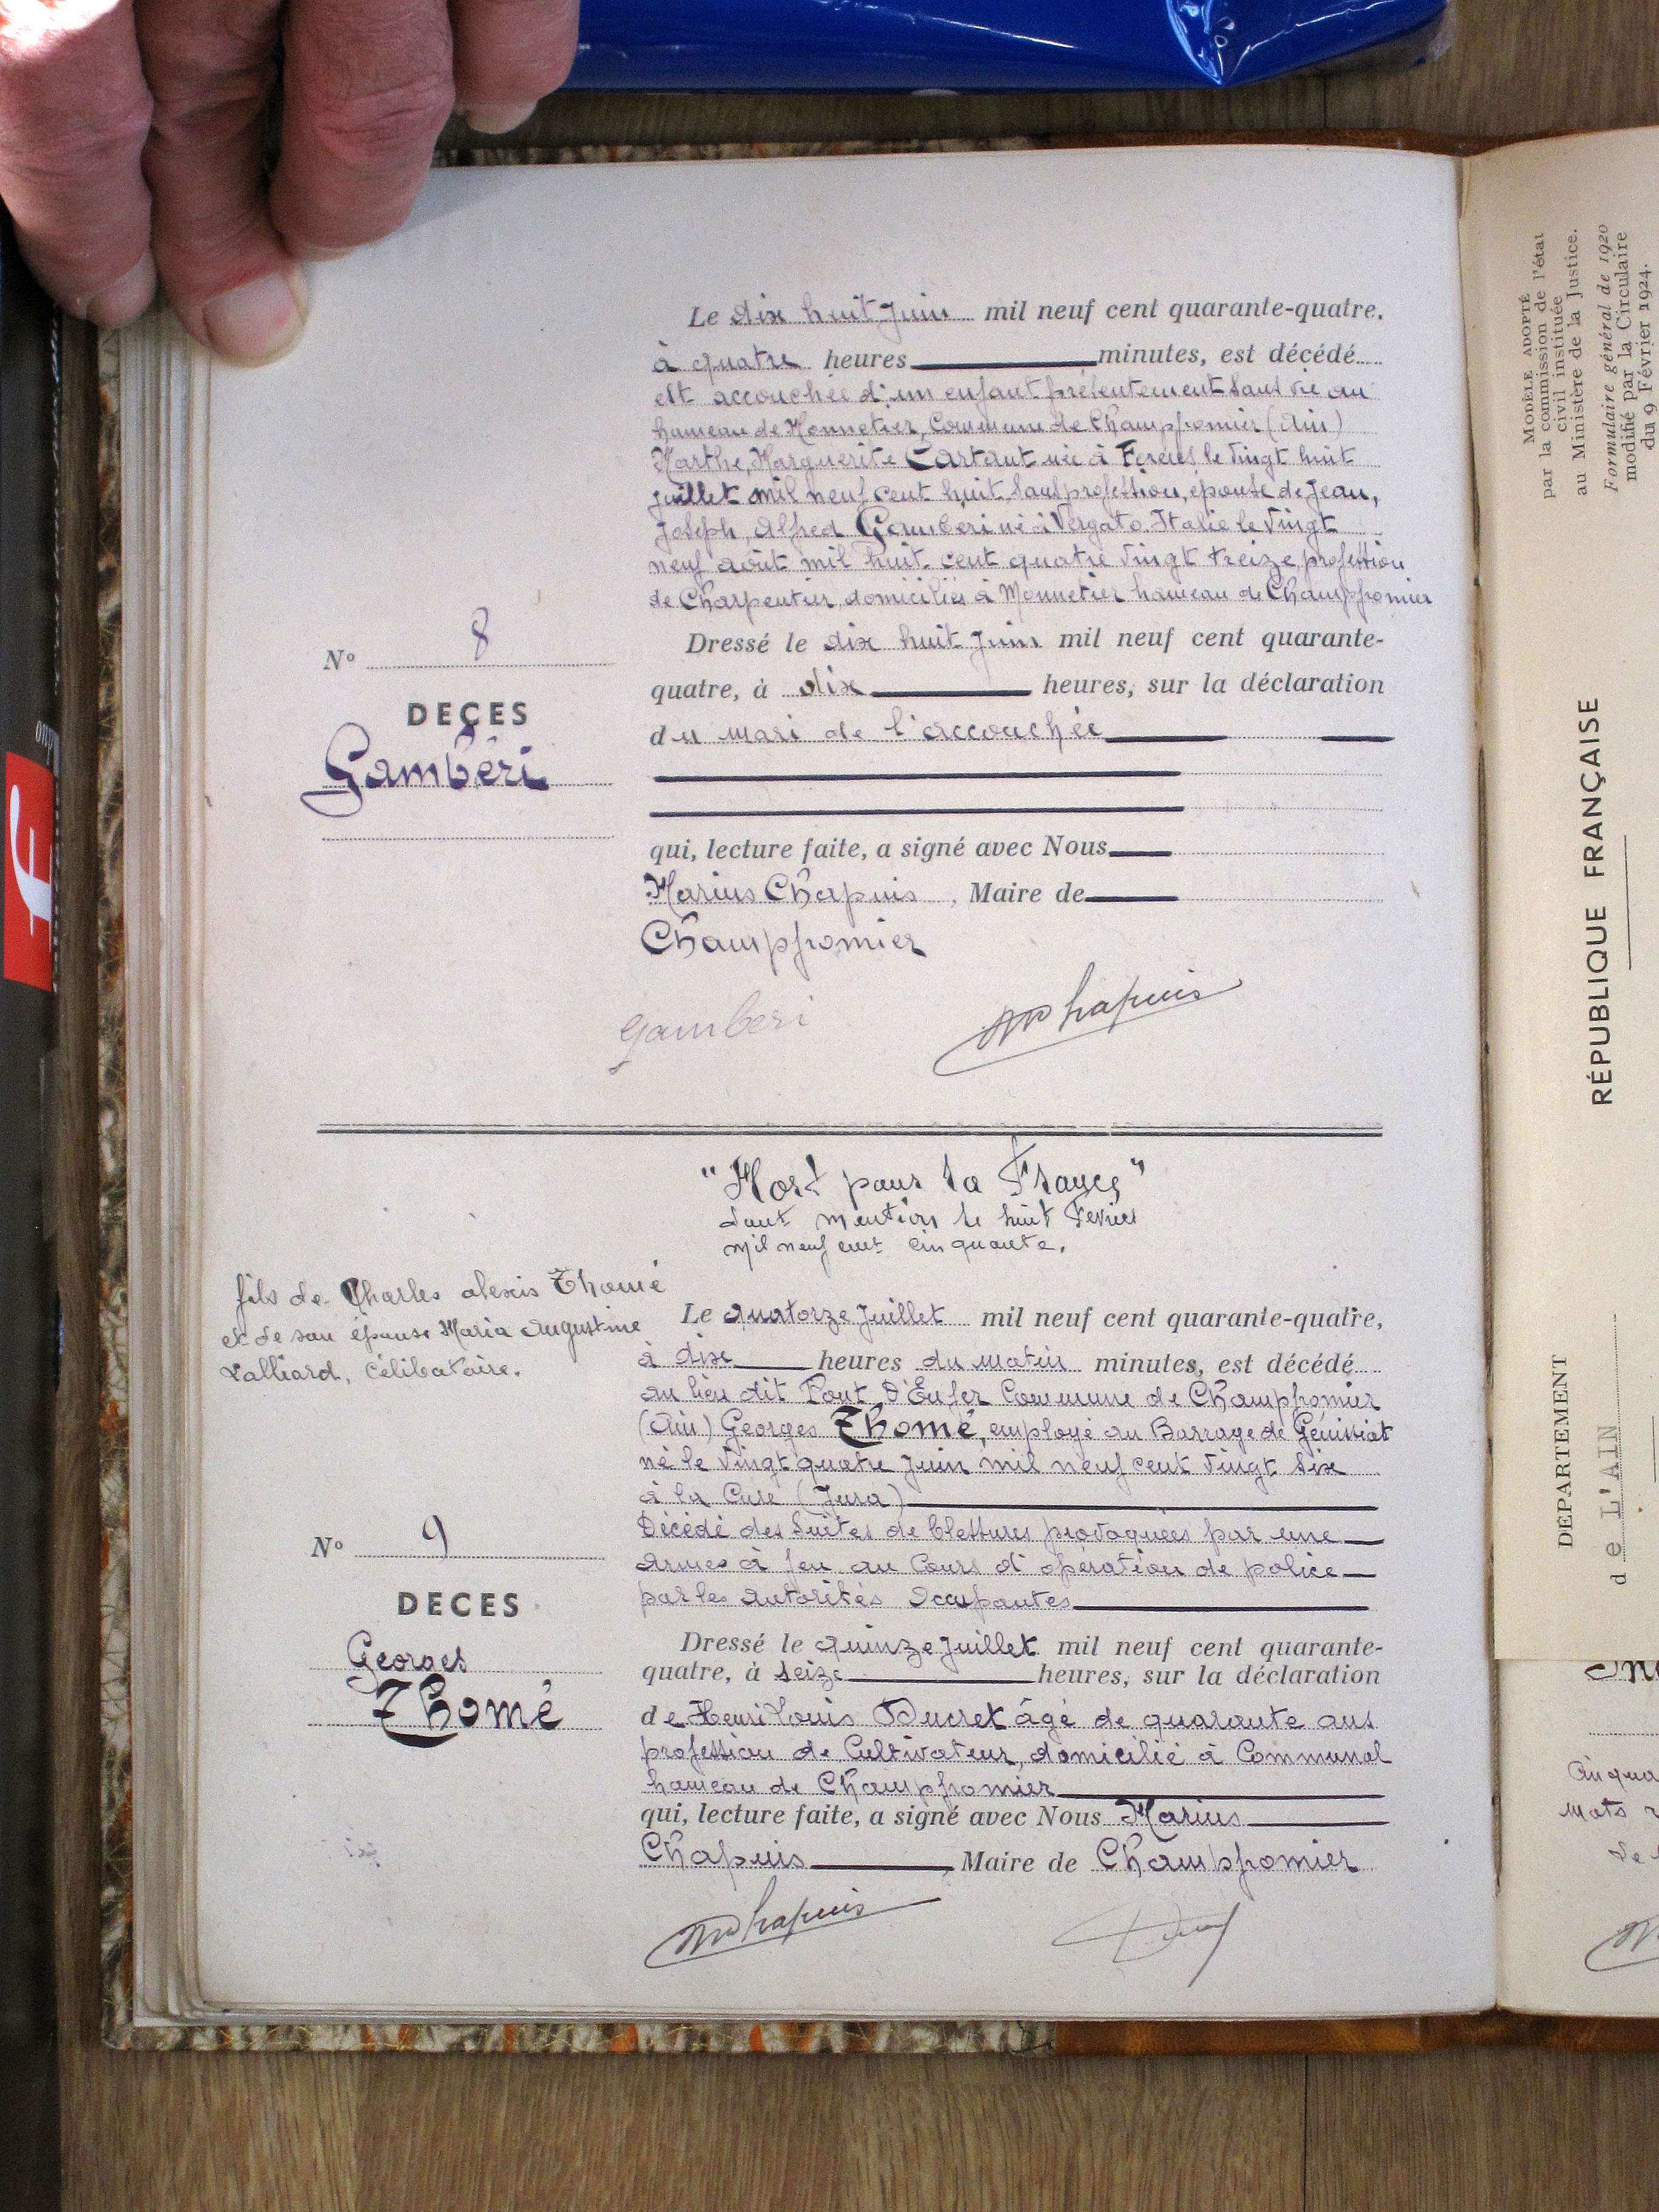 Le dix huit Juin mil neuf cent quarante-quatre.
à quatre heures minutes, est décédé
est accouchée d'un enfant présentement sans vie au
hameau de Monnetier, Commune de Champfromier (Ain)
Marthe, Marguerite Cartant née à Forens le Vingt huit
juillet mil neuf cent huit, sans profession, épouse de Jean,
Joseph, Alfred Gamberi né à Vergato Italie le Vingt
neuf août mil huit cent quatre Vingt treize, profession
de Charpentier, domiciliés à Monnetier hameau de Champfromier
N° 8
DECES
Gambéri
Dressé le dix huit Juin mil neuf cent quarante-
quatre, à dix heures, sur la déclaration
du mari de l'accouchée
qui, lecture faite, a signé avec Nous
Marius Chapuis, Maire de
Champfromier
Gamberi MChapuis
"Mort pour la France"
dont mention le huit Fevrier
mil neuf cent cinquante.
fils de Charles alexis Thomé
et de son épouse Maria Augustine
Lalliard, célibataire.
Le quatorze Juillet mil neuf cent quarante-quatre,
à dix heures du matin minutes, est décédé
au lieu dit Pont D'Enfer Commune de Champfromier
(Ain) Georges Thomé, employé au Barrage de Génissiat
né le Vingt quatre Juin mil neuf cent Vingt Six
à la Cure (Jura)
Décédé des Suites de blessures provoquées par une
armes à feu au Cours d'opération de police
par les Autorités Occupantes
N° 9
DECES
Georges
Thomé
Dressé le quinze Juillet mil neuf cent quarante-
quatre, à seize heures, sur la déclaration
de Henri Louis Ducret âgé de quarante ans
profession de Cultivateur, domicilié à Communal
hameau de Champfromier
qui, lecture faite, a signé avec Nous Marius
Chapuis, Maire de Champfromier
MChapuis
MODÈLE ADOPTÉ
par la commission de l'état
civil instituée
au Ministère de la Justice.
Formulaire général de 1920
modifié par la Circulaire
du 9 Février 1924.
RÉPUBLIQUE FRANÇAISE
DEPARTEMENT
de L'AIN